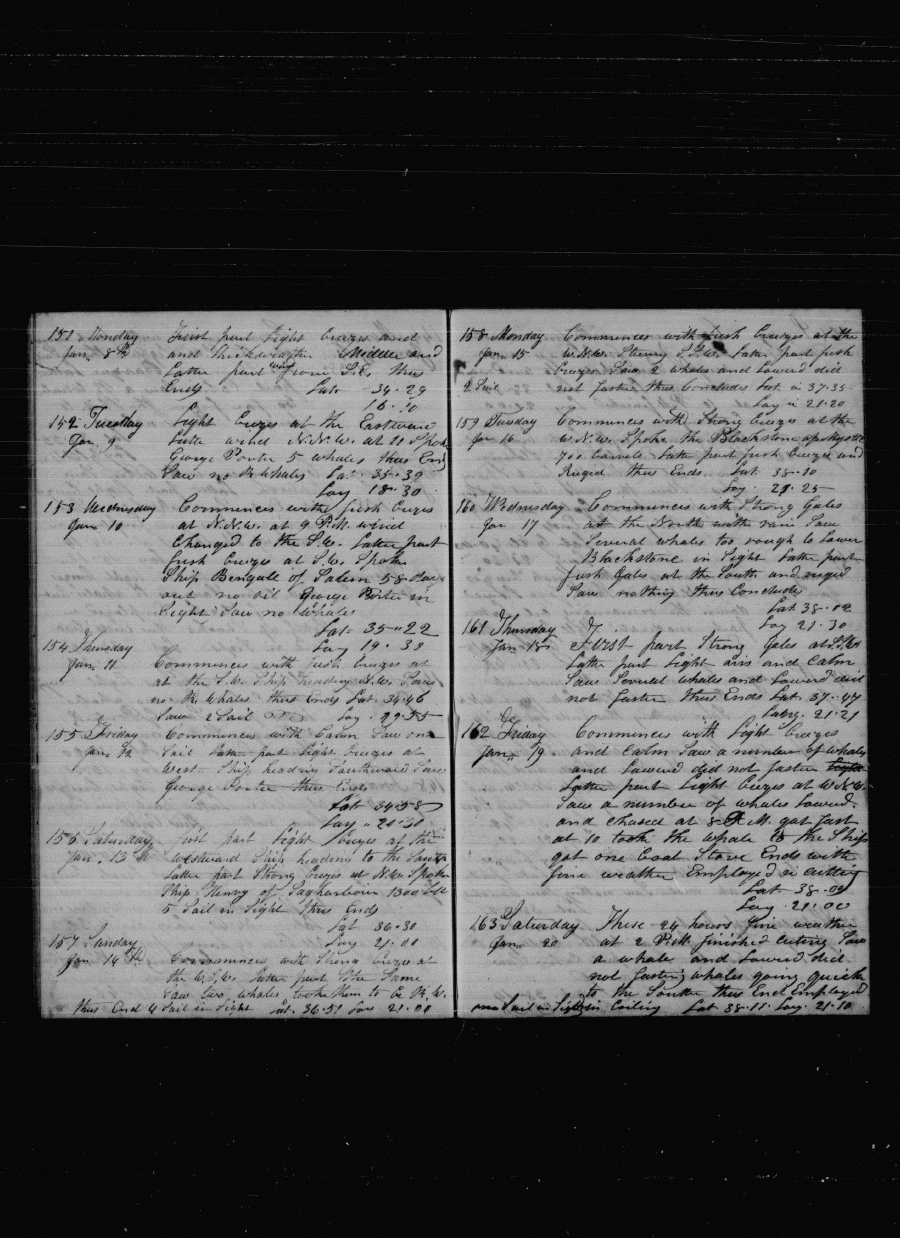 151 Monday First part light breezes and
Jan. 8th and thick weather Middle and
Latter part wind from S.E. thus
Ends Lat 34.29
16.30
152 Tuesday Light breezes at the Eastward
Jan 9 Latter wind N.N.W. at 10 Spoke
George Porter 5 whales thus Ends
Saw no R Whales Lat 35.39
Long 18.30
153 Wednesday Commences with fresh breezes
Jan 10 at N.N.W. at 9 P.M. wind
Changed to the S.W. Latter part
fresh breezes at S.W. Spoke
Ship Bengall of Salem 58 days
out no oil George Porter in
Sight Saw no Whales
Lat 35.22
Long 19.39
154 Thursday
Jan. 11 Commences with fresh breezes at
at the S.W. Ship heading N.W. Saw
no R. whales thus Ends Lat. 34.46
Saw 2 Sail Long. 22.55
155 Friday Commences with Calm Saw one
Jan 12 Sail Latter part light breezes at
West. Ship heading Southward Saw
George Porter thus Ends
Lat 34.58
Long 20.30
156 Saturday first part light breezes at the
Jan. 13th Westward Ship heading to the South
Latter part Strong breezes at N.W. Spoke
Ship Henry of Sagharbour 1300 bbls
5 Sail in Sight thus Ends
Lat 36.30
Long 21.00
157 Sunday
Jan 14th Commences with Strong breezes at
the W.S.W. Latter part the Same
Saw two whales took them to be R.W.
thus End 4 Sail in Sight Lat. 36.51 Lon 21.00
158 Monday Commences with fresh breezes at the
Jan. 15 W.N.W. Latter part fresh
breezes Saw 2 whales and Lowered did
2 Sail not fasten thus Concludes Lat. in 37.35
Long in 21.20
159 Tuesday Commences with Strong breezes at the
Jan 16 W.N.W. Spoke the Blackstone
700 barrels Latter part fresh breezes and
Ruged thus Ends. Lat 38.10
Long. 21.25
160 Wednesday Commences with Strong Gales
Jan 17 at the North with rain Saw
Several whales too rough to Lower
Blackstone in Sight Latter part
fresh Gales at the South and ruged
Saw nothing thus Conclude
Lat 38.02
161 Thursday Long 21.30
Jan 18 First part Strong Gales at S.W.
Latter part Light airs and Calm
Saw Several whales and Lowered did
not fasten thus Ends Lat. 37.47
Long. 21.21
162 Friday Commences with Light breezes
Jan. 19. and Calm Saw a number of whales
and Lowered did not fasten
Latter part Light breezes at W.N.W.
Saw a number of whales Lowered
and chased at 8 A.M. got fast
at 10 took the whale to the Ship
got one boat Stove Ends with
fine weather Employed in cutting
Lat 38.00
Long. 21.00
163 Saturday These 24 hours fine weather
Jan. 20 at 2 P.M. finished cutting Saw
a whale and Lowered did
not fasten whales going quick
to the South thus End Employed
one Sail in Sight in Boiling Lat. 38.11 Long. 21.10